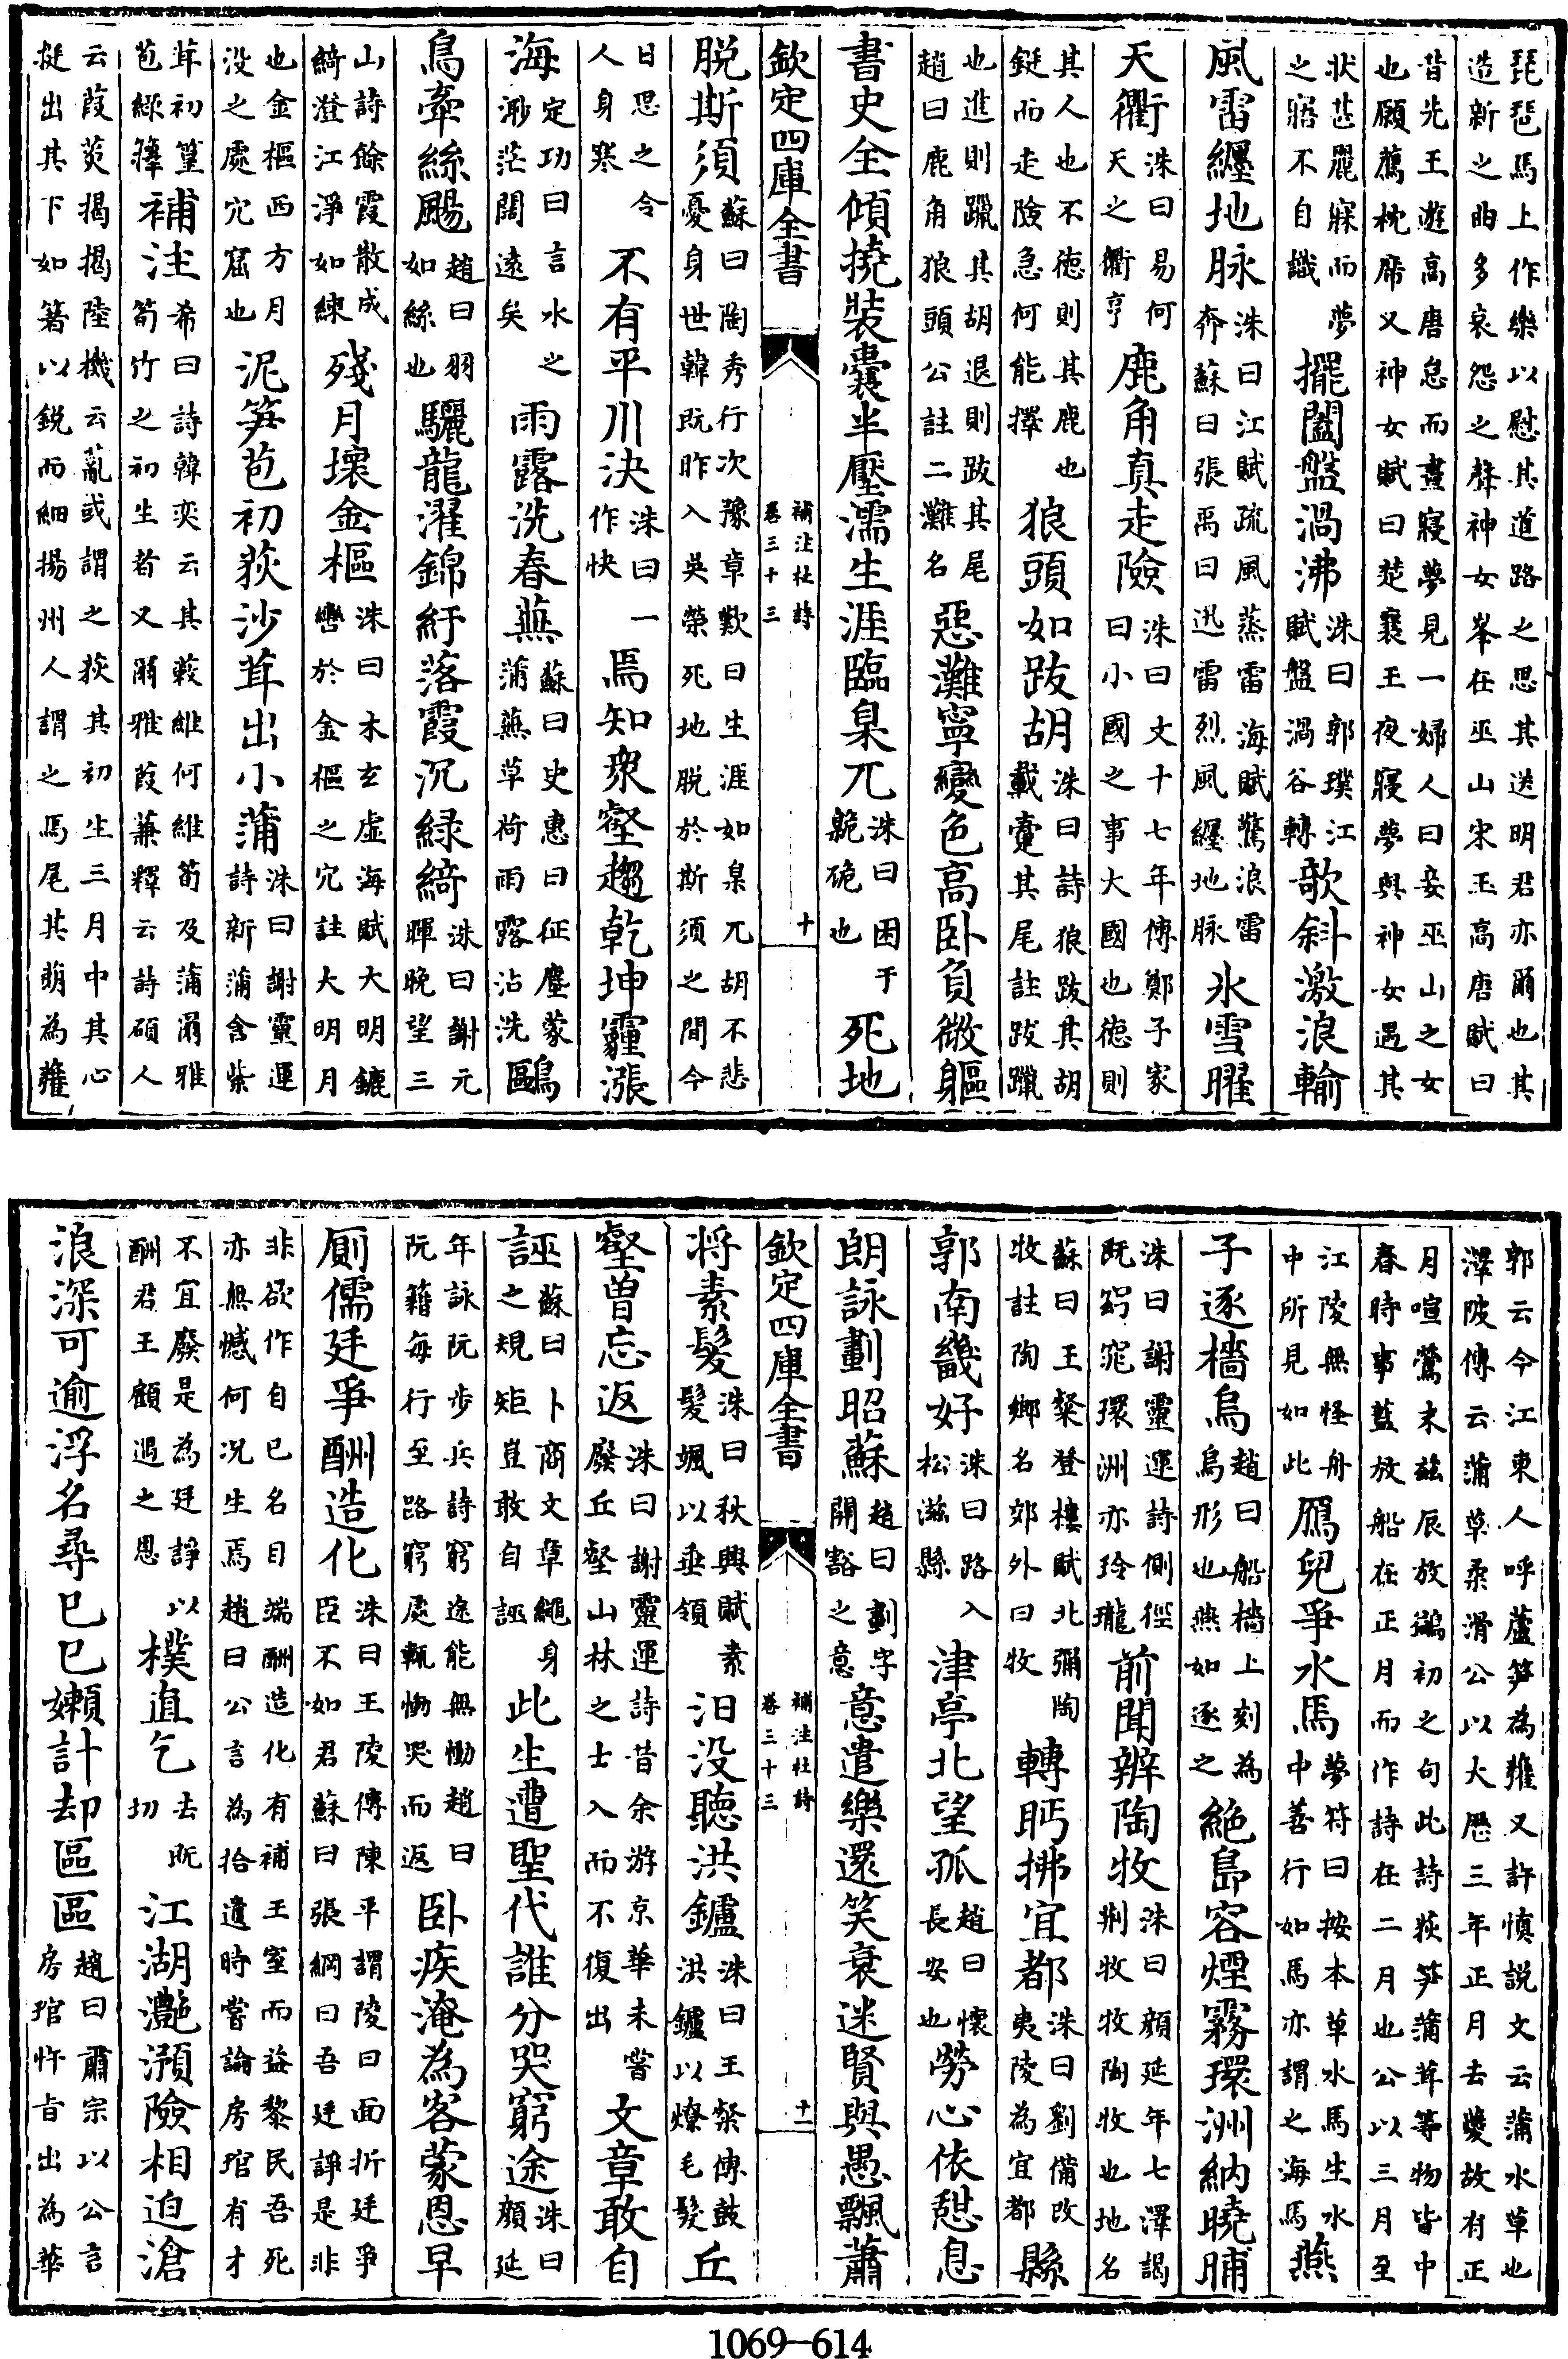 琵琶馬上作樂以慰其道路之思其送明君亦爾也其
造新之曲多哀怨之聲神女峯在巫山宋玉高唐賦曰
昔先王遊高唐怠而晝寢夢見一婦人曰妾巫山之女
也願薦枕席又神女賦曰楚襄王夜寢夢與神女遇其
状甚麗寐而夢之寤不自識擺闔盤渦沸洙曰郭璞江賦盤渦谷轉歌斜激浪輸
風雷纏地脉洙曰江賦疏風蒸雷海賦驚浪雷奔蘇曰張禹曰迅雷烈風纏地脉氷雪曜
天衢洙曰易何天之衢亨鹿角真走險洙曰文十七年傳鄭子家曰小國之事大國也徳則
其人也不徳則其鹿也鋌而走險急何能擇狼頭如跋胡洙曰詩狼跋其胡載疐其尾註跋躐
也進則躐其胡退則跋其尾趙曰鹿角狼頭公註二灘名惡灘寧變色高卧負微軀
書史全傾撓裝囊半壓濡生涯臨臬兀洙曰困于臲硊也死地
欽定四庫全書 補注杜詩 卷三十三 十
脱斯須蘇曰陶秀行次豫章歎曰生涯如臬兀胡不悲憂身世韓既昨入吳榮死地脱於斯須之間今
日思之令人身寒不有平川決洙曰一作快焉知衆壑趨乾坤霾漲
海定功曰言水之渺茫闊遠矣雨露洗春蕪蘇曰史惠曰征塵蒙蒲蕪草荷雨露沾洗鷗
鳥牽絲颺趙曰羽如絲也驪龍濯錦紆落霞沉緑綺洙曰謝元暉晚望三
山詩餘霞散成綺澄江淨如練殘月壞金樞洙曰木玄虛海賦大明鑣轡於金樞之穴註大明月
也金樞西方月没之處穴窟也泥笋苞初荻沙茸出小蒲洙曰謝靈運詩新蒲含紫
茸初篁苞綠籜補注希曰詩韓奕云其蔌維何維筍及蒲爾雅筍竹之初生者又爾雅葭蒹釋云詩碩人
云葭菼揭揭陸機云薍或謂之荻其初生三月中其心
挺出其下如箸以鋭而細揚州人謂之馬尾其萌為虇
郭云今江東人呼蘆笋為虇又許慎説文云蒲水草也
澤陂傳云蒲草柔滑公以大厯三年正月去夔故有正
月喧鶯末兹辰放鷁初之句此詩荻笋蒲茸等物皆中
春時事葢放船在正月而作詩在二月也公以三月至
江陵無怪舟中所見如此鴈兒爭水馬夢符曰按本草水馬生水中善行如馬亦謂之海馬燕
子逐檣烏趙曰船檣上刻為烏形也燕如逐之絶島容煙霧環洲納曉晡
洙曰謝靈運詩側徑既窈窕環洲亦玲瓏前聞辨陶牧洙曰顔延年七澤謁荆牧牧陶牧也地名
蘇曰王粲登樓賦北彌陶牧註陶鄉名郊外曰牧轉眄拂宜都洙曰劉備改夷陵為宜都縣
郭南畿好洙曰路入松滋縣津亭北望孤趙曰懷長安也勞心依憇息
朗詠劃昭蘇趙曰劃字開豁之意意遣樂還笑衰迷賢與愚飄蕭
欽定四庫全書 補注杜詩 卷三十三 十一
将素髪洙曰秋興賦素髪颯以垂領汨没聽洪鑪洙曰王粲傳鼓洪鑪以燎毛髪丘
壑曾忘返洙曰謝靈運詩昔余游京華未嘗廢丘壑山林之士入而不復出文章敢自
誣蘇曰卜商文章繩身之規矩豈敢自誣此生遭聖代誰分哭窮途洙曰顔延
年詠阮歩兵詩窮途能無慟趙曰阮籍每行至路窮處輒慟哭而返卧疾淹為客蒙恩早
厠儒廷爭酬造化洙曰王陵傳陳平謂陵曰面折廷爭臣不如君蘇曰張綱曰吾廷諍是非
非欲作自已名目端酬造化有補王室而益黎民吾死
亦無憾何況生焉趙曰公言為拾遺時嘗論房琯有才
不宜廢是為廷諍以酬君王顧遇之恩樸直乞去既切江湖灔澦險相迫滄
浪深可逾浮名尋已已嬾計却區區趙曰肅宗以公言房琯忤旨出為華
1069-614